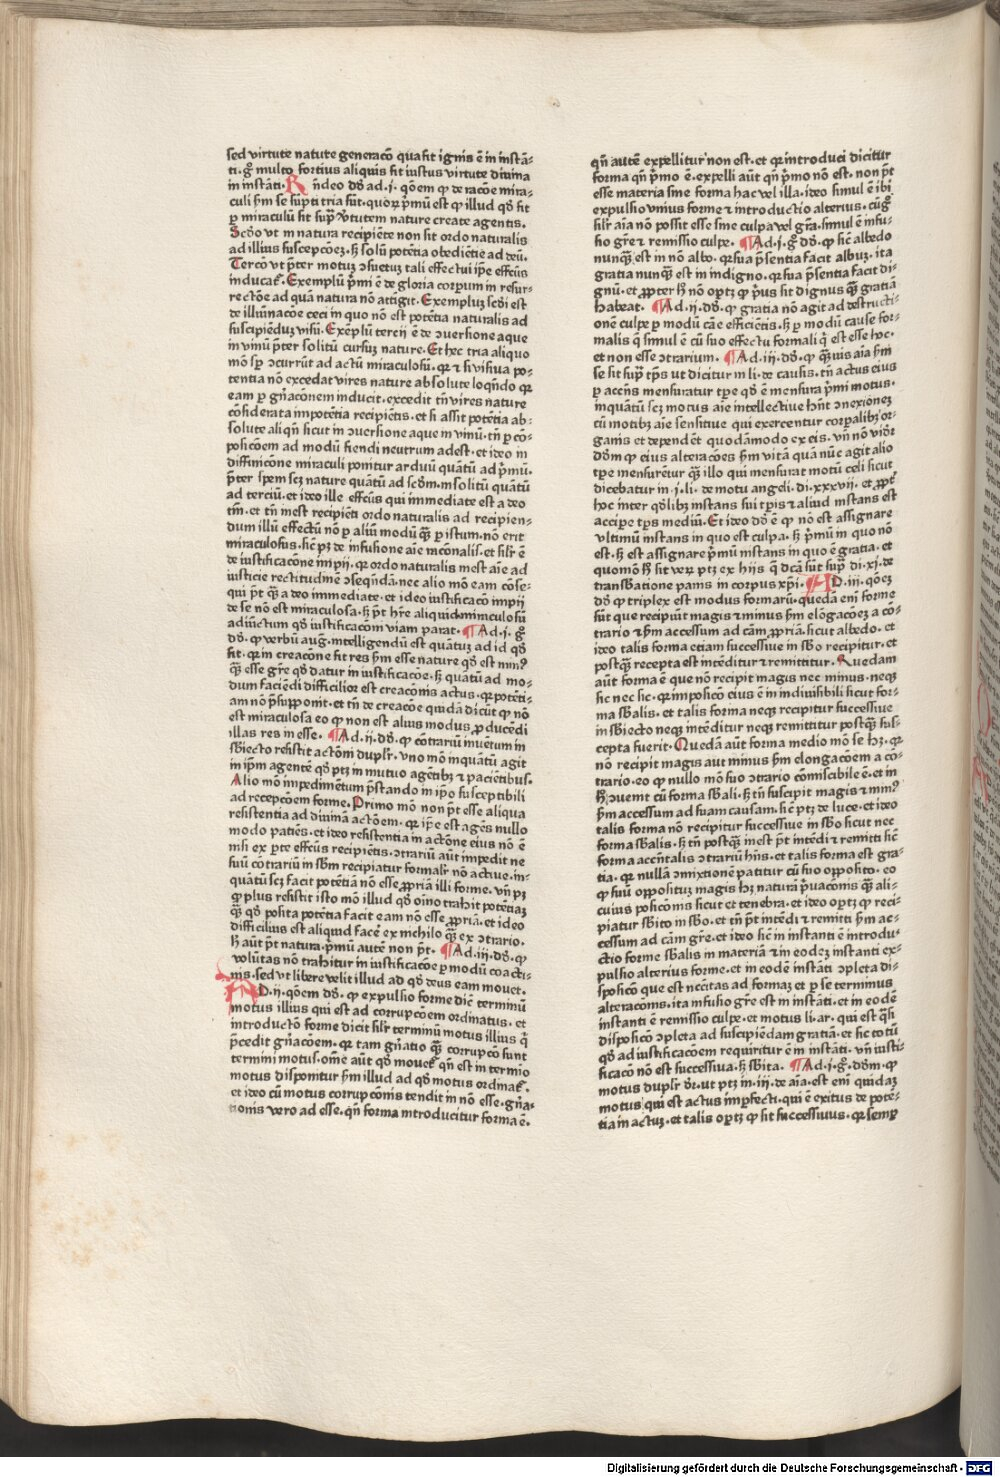 sed virtute nature generacō qua fit ignis ē in instā-
ti. gͦ multo fortius aliquis fit iustus virtute diuina
in instāti. Rn̄deo dō ad .j. qōem ꝙ de racōe mira-
culi ẜm se sūpti tria sūt. quoꝝ pͥmū est ꝙ illud qd̓ fit
ꝑ miraculū fit supͣ v̓tutem nature create agentis.
Scd̓o vt in natura recipiēte non sit ordo naturalis
ad illius susceptcōez. s̄ꝫ solū potētia obedietie ad deū.
Tercō vt p̄ter motuꝫ ↄsuetuꝫ tali effectui ip̄e effcūs
inducat᷑. Exemplū pͥmi ē de gloria corpum in resur-
rectōe ad quā natura nō attīgit. Exempluꝫ scd̓i est
de illuīnacōe ceci in quo nō est potētia naturalis ad
suscipiēduꝫ visū. Exēplū tercii ē de ↄuersione aque
in vinū p̄ter solitū cursuꝫ nature. Et hec tria aliquo
mō sꝑ ↄcurrūt ad actū miraculosū. qꝛ ⁊ si visiua po-
tentia nō excedat vires nature absolute loqn̄do qꝛ
eam ꝑ gn̄acōnem inducit. excedit tn̄ vires nature
cōsiderata impotētia recipiētis. et si assit potētia ab-
solute aliqn̄ sicut in ↄuersione aque in vinū. tn̄ ꝑ cō-
posicōem ad modū fiendi neutrum adest. et ideo in
diffinicōne miraculi ponitur arduū quātū ad pͥmū.
p̄ter spem scꝫ nature quātū ad scd̓m. insolitū quātū
ad terciū. et ideo ille effcūs qui immediate est a deo
tm̄. et tn̄ inest recipiēti ordo naturalis ad recipien-
dum illū effectū nō ꝑ aliū modū qͣꝫ ꝑ istum. nō erit
miraculosus. sic̄ pꝫ de infusione aīe racōnalis. et sil̓r ē
de iustificacōne impii. qꝛ ordo naturalis inest aīe ad
iusticie rectitudinē ↄseqn̄dā. nec alio mō eam cōse-
qui pt̄ qͣꝫ a deo immediate. et ideo iustificacō impii
de se nō est miraculosa. s̄ꝫ pt̄ hr̄e aliquid miraculosū
adiūctum qd̓ iustificacōni viam parat. ¶ Ad .j. gͦ
dō. ꝙ verbū aug. intelligendū est quātuꝫ ad id qd̓
fit. qꝛ in creacōne fit res ẜm esse nature qd̓ est min⁹
qͣꝫ esse grē qd̓ datur in iustificacōe. s̄ꝫ quātū ad mo-
dum faciēdi difficilior est creacōnis actus. qꝛ potēti-
am nō p̄supponit. et tn̄ de creacōe quidā dicūt ꝙ nō
est miraculosa eo ꝙ non est alius modus ꝓducēdi
illas res in esse. ¶ Ad .ii. dō. ꝙ cōtrariū inuētum in
sb̓iecto resistit actōni dupl̓r. vno mō inquātū agit
in ip̄m agentē qd̓ ptꝫ in mutuo agētibꝫ ⁊ paciētibus.
Alio mō impedimētum p̄stando in ip̄o susceptibili
ad recepcōem forme. Primo mō non pt̄ esse aliqua
resistentia ad diuinā actōem. qꝛ ip̄e est agēs nullo
modo patiēs. et ideo resistentia in actōne eius nō ē
nisi ex ꝑte effcūs recipiētis. ↄtrariū aūt impedit ne
suū cōtrariū in sb̓m recipiatur formalr̄ nō actiue. in-
quātū scꝫ facit potētiā nō esse ꝓpriā illi forme. vn̄ pꝫ
ꝙ plus resistit isto mō illud qd̓ oīno trahit potētiaꝫ
qͣꝫ qd̓ posita potētia facit eam nō esse ꝓpriā. et ideo
difficilius est aliquid facē ex nichilo qͣꝫ ex ↄtrario.
s̄ꝫ aūt pt̄ natura. pͥmū autē non pt̄. ¶ Ad .iii. dō. ꝙ
volūtas nō trahitur in iustificacōe ꝑ modū coacti-
nis. sed vt libere velit illud ad qd̓ deus eam mouet.
AD .ii. qōem dō. ꝙ expulsio forme dic̄ terminū
motus illius qui est ad corrupcōem ordinatus. et
introductō forme dicit sil̓r terminū motus illius qͥ
p̄cedit gn̄acōem. qꝛ tam gn̄atio qͣꝫ corrupcō sunt
termini motus. om̄e aūt qd̓ mouet᷑ qn̄ est in termio
motus disponitur ẜm illud ad qd̓ motus ordinat᷑.
et ideo cū motus corrupcōnis tendit in nō esse. gn̄a-
tionis vero ad esse. qn̄ forma introducitur forma ē.
qn̄ autē expellitur non est. et qꝛ introduci dicitur
forma qn̄ pͥmo ē. expelli aūt qn̄ pͥmo nō est. non pt̄
esse materia sine forma hac vel illa. ideo simul ē ibi
expulsio vnius forme ⁊ introductio alterius. cū gͦ
sil̓r aīa nō possit esse sine culpa vel gr̄a. simul ē infu-
sio gr̄e ⁊ remissio culpe. ¶ Ad .j. gͦ dō. ꝙ sic̄ albedo
nunqͣꝫ est in nō albo. qꝛ sua p̄sentia facit albuꝫ. ita
gratia nunqͣꝫ est in indigno. qꝛ sua p̄sentia facit di-
gnū. et ꝓpter h̄ nō oportꝫ ꝙ pͥus sit dignus qͣꝫ gratiā
habeat. ¶ Ad .ii. dō. ꝙ gratia nō agit ad destructi-
onē culpe ꝑ modū cāe efficiētis. s̄ꝫ ꝑ modū cause for-
malis qͥ simul ē cū suo effectu formali qͥ est esse hoc.
et non esse ↄtrarium. ¶ Ad .iii. dō. ꝙ qͣꝫuis aīa ẜm
se sit supͣ tp̄s vt dicitur in li. de causis. tn̄ actus eius
ꝑ accn̄s mensuratur tp̄e qd̓ ē mensura pͥmi motus.
inquātū scꝫ motus aīe intellectiue hn̄t ↄnexionez
cū motibꝫ aīe sensitiue qui exercentur corꝑalibꝫ or-
ganis et dependēt quodāmodo ex eis. vn̄ nō vid̓r
dōm ꝙ eius alteracōes ẜm vitā quā nūc agit alio
tp̄e mensurētur qͣꝫ illo qui mensurat motū celi sicut
dicebatur in .j. li. de motu angeli. di. xxxvii. et ꝓpt̓
hoc inter qd̓libꝫ instans sui tp̄ris ⁊ aliud instans est
accipe tp̄s mediū. Et ideo dō ē ꝙ nō est assignare
vltimū instans in quo est culpa. s̄ꝫ pͥmū in quo nō
est. s̄ꝫ est assignare pͥmū instans in quo ē gratia. et
quomō h̄ sit veꝝ ptꝫ ex hiis q̄ dc̄a sūt supͣ di. xi. de
transb̓atione panis in corpus xp̄i. ¶ AD .iii. qōeꝫ
dō ꝙ triplex est modus formarū. quedā eni forme
sūt que recipiūt magis ⁊ minus ẜm elōgacōeꝫ a cō-
trario ⁊ ẜm accessum ad cām ꝓpriā. sicut albedo. et
ideo talis forma etiam successiue in sb̓o recipitur. et
postqͣꝫ recepta est intēditur ⁊ remittitur. Quedam
aūt forma ē que nō recipit magis nec minus. neqꝫ
sic nec sic. qꝛ in posicō eius ē in indiuisibili sicut for-
ma sb̓alis. et talis forma neqꝫ recipitur successiue
in sb̓iecto neqꝫ intēditur neqꝫ remittitur postqͣꝫ sus-
cepta fuerit. Quedā aūt forma medio mō se hꝫ. qꝛ
nō recipit magis aut minus ẜm elongacōem a cō-
trario. eo ꝙ nullo mō suo ↄtrario cōmiscibile ē. et in
h̄ ↄuenit cū forma sb̓ali. s̄ꝫ tn̄ suscipit magis ⁊ min⁹
ẜm accessum ad suam causam. sic̄ ptꝫ de luce. et ideo
talis forma nō recipitur successiue in sb̓o sicut nec
forma sb̓alis. s̄ꝫ tn̄ postqͣꝫ inest pt̄ intēdi ⁊ remitti sic̄
forma accn̄talis ↄtrariū hn̄s. et talis forma est gra-
tia. qꝛ nullā ↄmixtionē patitur cū suo opposito. eo
ꝙ suū oppositum magis hꝫ naturā pͥuacōnis qͣꝫ ali-
cuius posicōnis sicut et tenebra. et ideo oportꝫ ꝙ reci-
piatur sb̓ito in sb̓o. et tn̄ pt̄ intēdi ⁊ remitti ẜm ac-
cessum ad cām gr̄e. et ideo sic̄ in instanti ē introdu-
ctio forme sb̓alis in materiā ⁊ in eodeꝫ instanti ex-
pulsio alterius forme. et in eodē instāti ↄpleta di-
spositio que est necitas ad formaꝫ et ꝑ se terminus
alteracōnis. ita infusio gr̄e est in instāti. et in eodē
instanti ē remissio culpe. et motus li. ar. qui est qͣsi
dispositio ↄpleta ad suscipiēdam gratiā. et sic totū
qd̓ ad iustificacōem requiritur ē in instāti. vn̄ iusti-
ficacō nō est successiua. s̄ꝫ sb̓ita. ¶ Ad .j. gͦ. dōm. ꝙ
motus dupl̓r dr̄. vt ptꝫ in .iii. de aīa. est enī quidaꝫ
motus qui est actus imꝑfecti. qui ē exitus de potē-
tia in actuꝫ. et talis oportꝫ ꝙ sit successiuus. qꝛ semꝑ
Digitalisierung gefördert durch die Deutsche Forschungsgemeinschaft - DFG